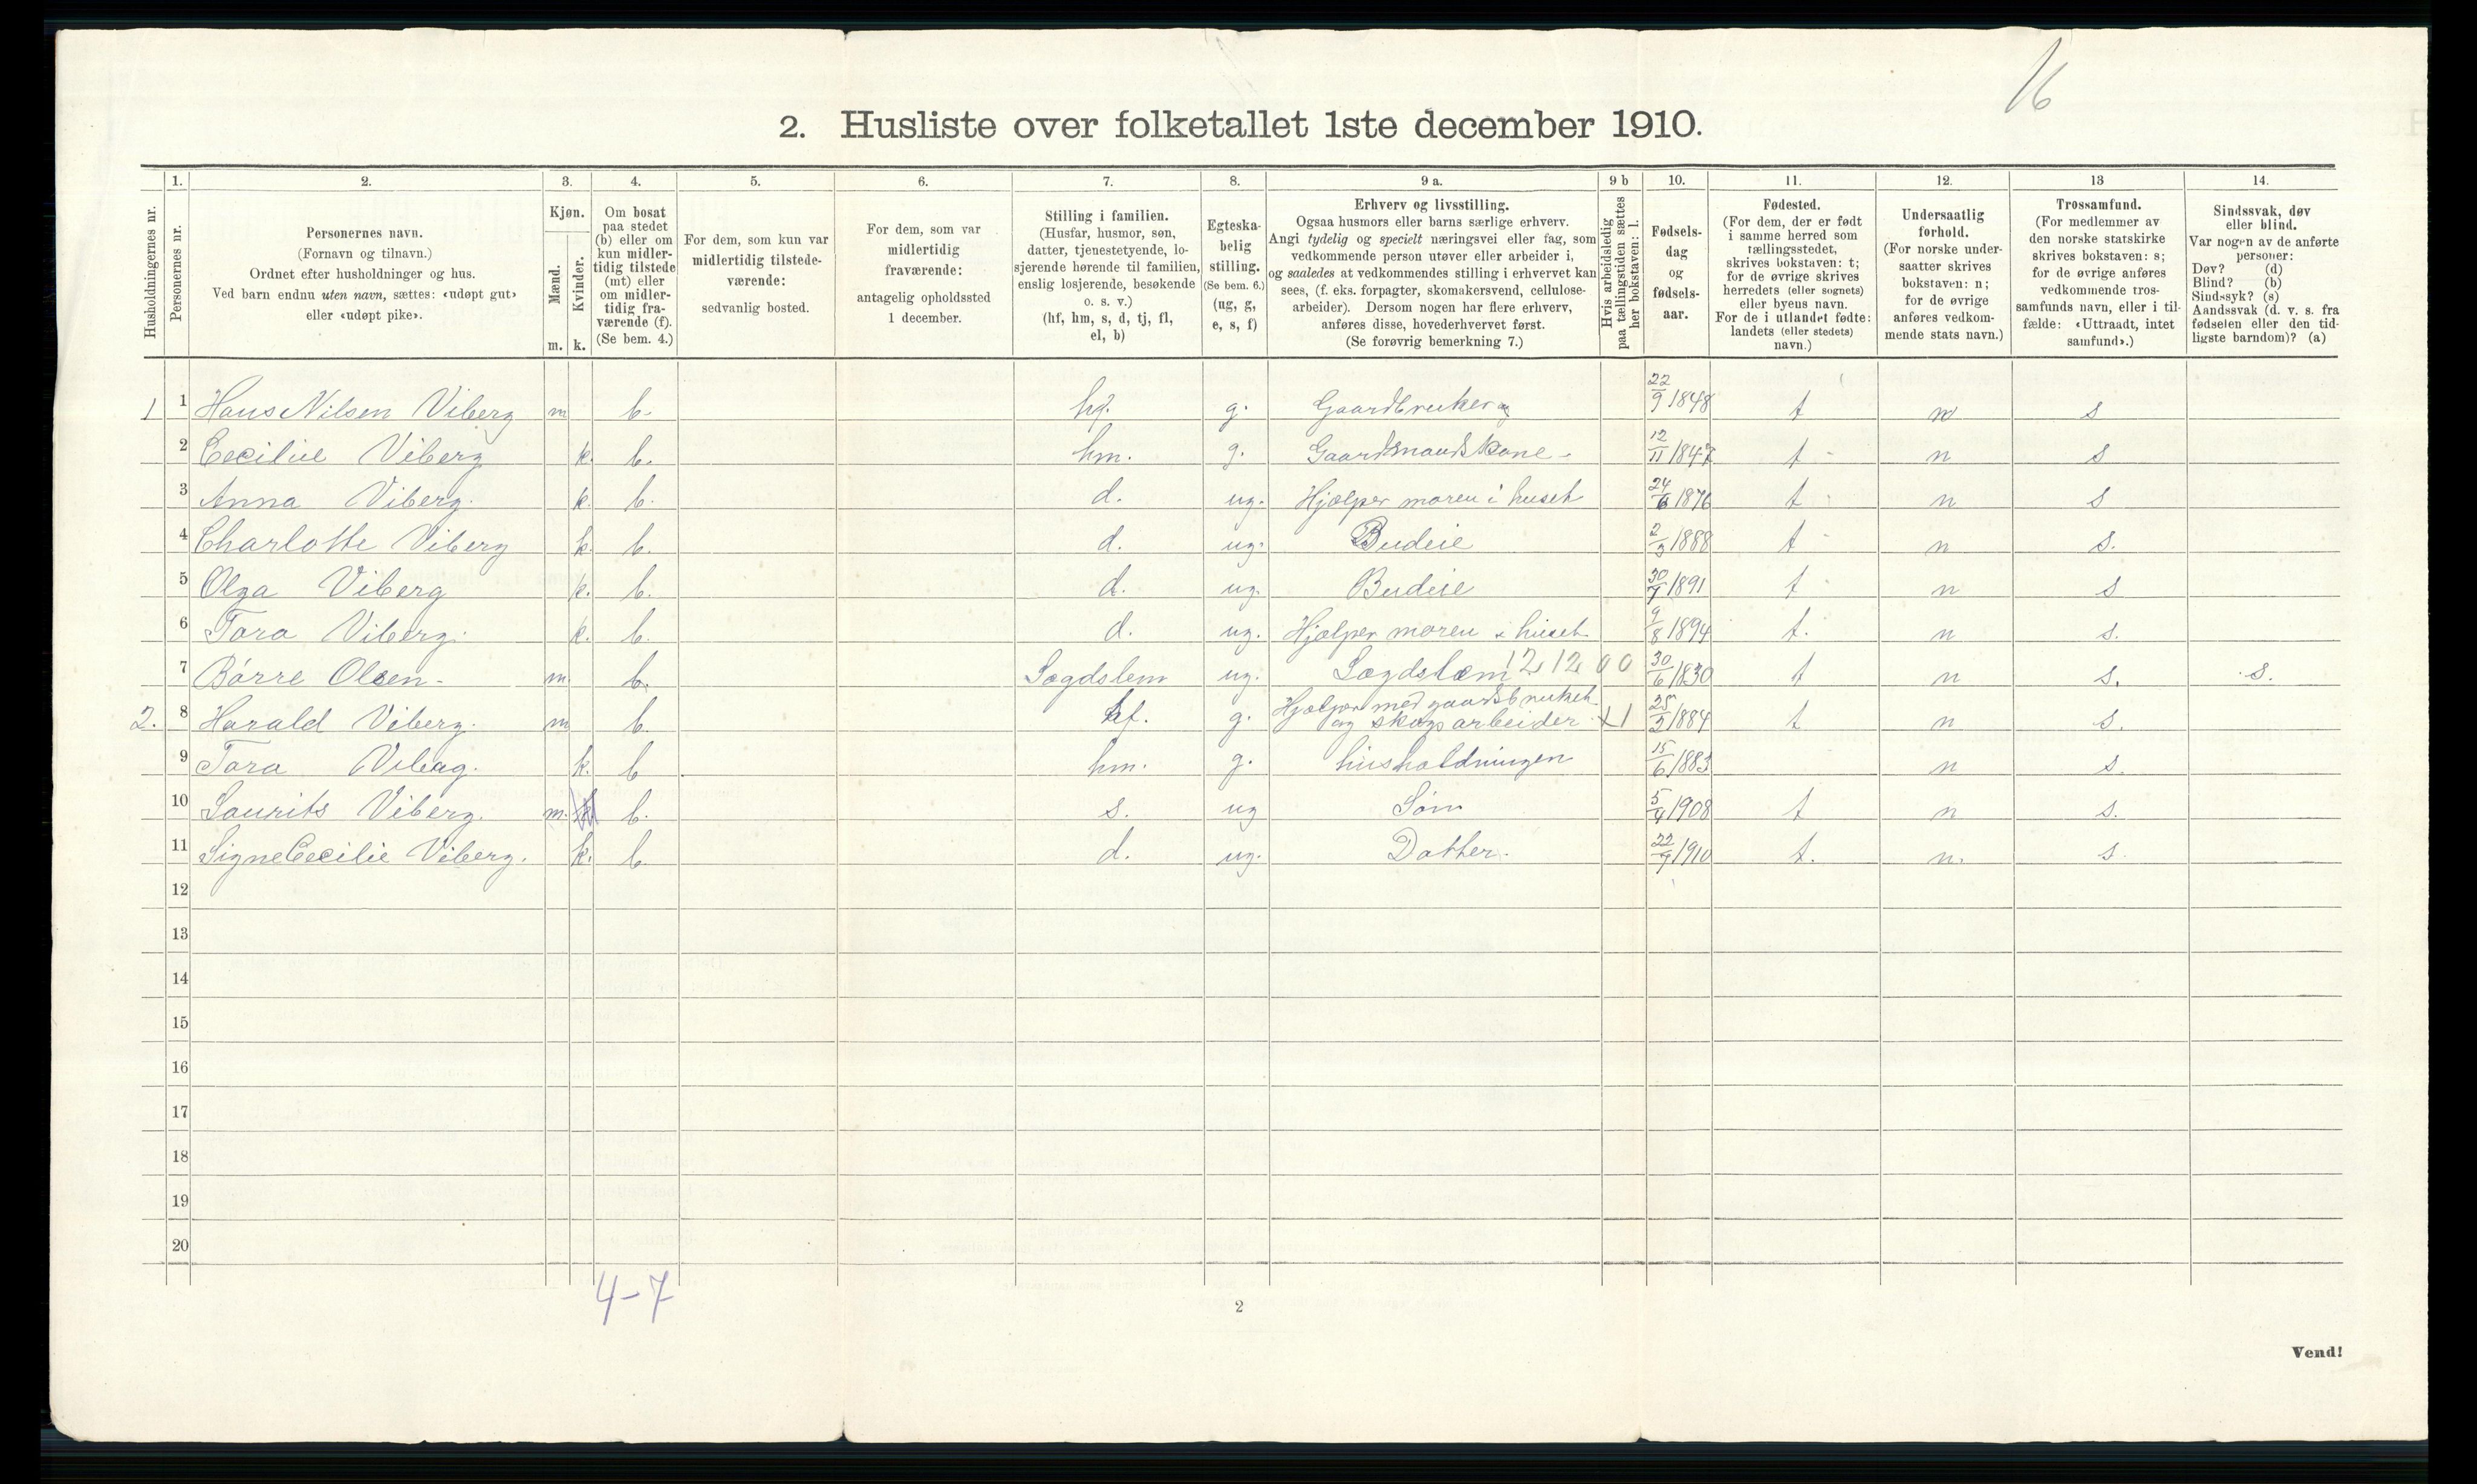 16
2. Husliste over folketallet 1ste december 1910.
Husholdningernes nr. | 1. Personernes nr. | 2. Personernes navn. (Fornavn og tilnavn.) Ordnet efter husholdninger og hus. Ved barn endnu uten navn, sættes: «udøpt gut» eller «udøpt pike». | 3. Kjøn. Mænd. m. Kvinder. k. | 4. Om bosat paa stedet (b) eller om kun midlertidig tilstede (mt) eller om midlertidig fraværende (f). (Se bem. 4.) | 5. For dem, som kun var midlertidig tilstedeværende: sedvanlig bosted. | 6. For dem, som var midlertidig fraværende: antagelig opholdssted 1 december. | 7. Stilling i familien. (Husfar, husmor, søn, datter, tjenestetyende, losjerende hørende til familien, enslig losjerende, besøkende o. s. v.) (hf, hm, s, d, tj, fl, el, b) | 8. Egteskabelig stilling. (Se bem. 6.) (ug, g, e, s, f) | 9 a. Erhverv og livsstilling. Ogsaa husmors eller barns særlige erhverv. Angi tydelig og specielt næringsvei eller fag, som vedkommende person utøver eller arbeider i, og saaledes at vedkommendes stilling i erhvervet kan sees, (f. eks. forpagter, skomakersvend, cellulosearbeider). Dersom nogen har flere erhverv, anføres disse, hovederhvervet først. (Se forøvrig bemerkning 7.) | 9 b Hvis arbeidsledig paa tællingstiden sættes her bokstaven: l. | 10. Fødselsdag og fødselsaar. | 11. Fødested. (For dem, der er født i samme herred som tællingsstedet, skrives bokstaven: t; for de øvrige skrives herredets (eller sognets) eller byens navn. For de i utlandet fødte: landets (eller stedets) navn.) | 12. Undersaatlig forhold. (For norske undersaatter skrives bokstaven: n; for de øvrige anføres vedkommende stats navn.) | 13 Trossamfund. (For medlemmer av den norske statskirke skrives bokstaven: s; for de øvrige anføres vedkommende trossamfunds navn, eller i tilfælde: «Uttraadt, intet samfund».) | 14. Sindssvak, døv eller blind. Var nogen av de anførte personer: Døv? (d) Blind? (b) Sindssyk? (s) Aandssvak (d. v. s. fra fødselen eller den tidligste barndom)? (a)
1 | 1 | Hans Nilsen Viberg | m | b. | hf. | g. | Gaardbruker | 22/9 1848 | t | n | s
2 | Cecilie Viberg | k. | b. | hm. | g. | Gaardmandskone - | 12/11 1847 | t - | n | s
3 | Anna Viberg. | k. | b. | d. | ug. | Hjælper moren i huset | 24/6 1876 | t | n | s
4 | Charlotte Viberg | k. | b. | d. | ug. | Budeie | 2/3 1888 | t - | n | s.
5 | Olga Viberg | k. | b. | d. | ug. | Budeie | 30/7 1891 | t - | n | s
6 | Tora Viberg. | k. | b. | d. | ug. | Hjælper moren i huset | 9/8 1894 | t. | n | s.
7 | Börre Olsen - | m. | b. | Lægdslem | ug. | Lægdslæm 12 12 00 | 30/6 1830 | t | n | s. | s.
2. | 8 | Harald Viberg. | m | b. | hf. | g. | Hjælper med gaardsbruket og skogsarbeider | x1 | 25/2 1884 | t | n | s.
9 | Tora Viberg. | k. | b | hm. | g. | husholdningen | 15/6 1883 | n | s.
10 | Laurits Viberg. | m. | b. | s. | ug | Sön | 5/4 1908 | t | n | s.
11 | Signe Cecilie Viberg. | k. | b. | d. | ug. | Datter. | 22/9 1910 | t. | n. | s.
12
13
14
15
16
17
18
19
20
4-7
2
Vend!